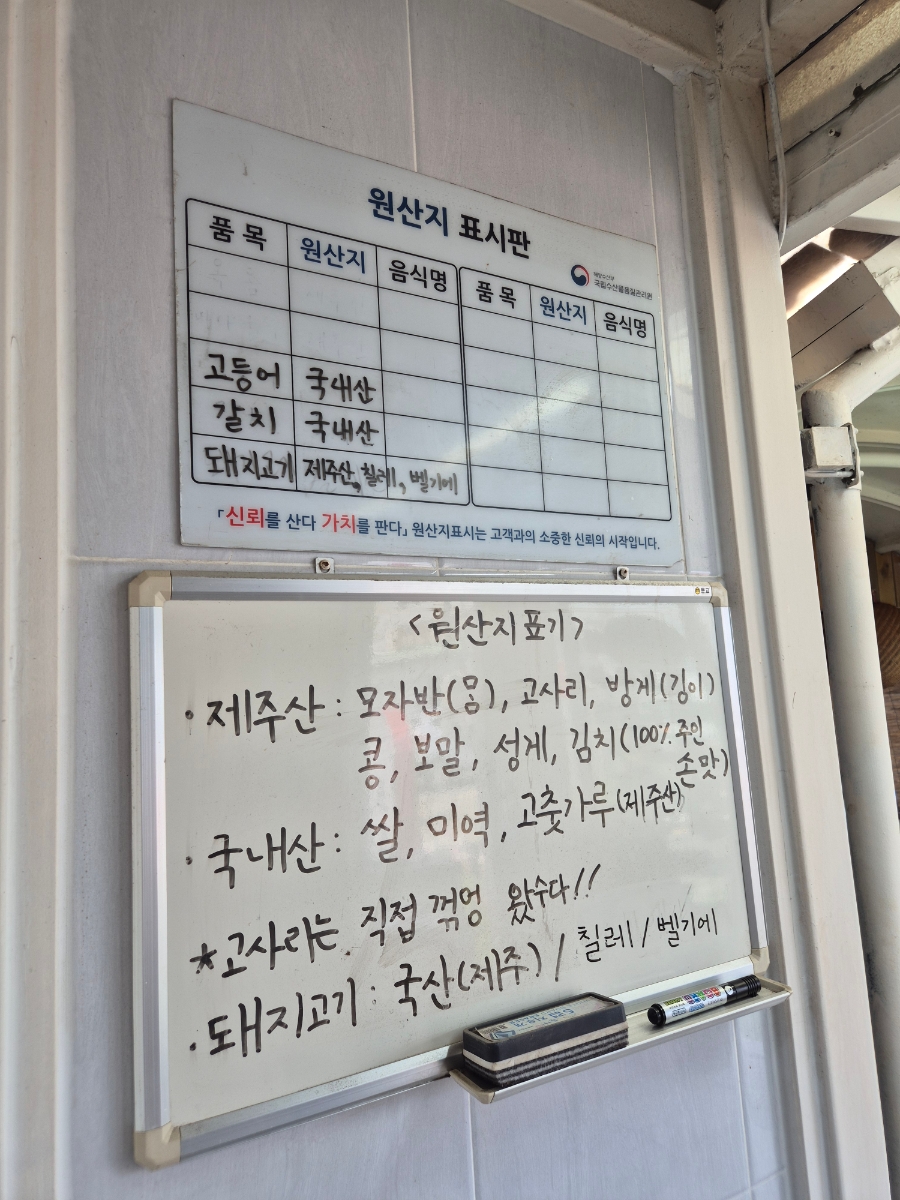 원산지 표시판
해양수산부
국립수산물품질관리원
품 목 원산지 음식명 품 목 원산지 음식명
고등어 국내산
갈치 국내산
돼지고기 제주산, 칠레, 벨기에
「신뢰를 산다 가치를 판다」 원산지표시는 고객과의 소중한 신뢰의 시작입니다.
<원산지 표기>
· 제주산 : 모자반(몸), 고사리, 방게(깅이)
콩, 보말, 성게, 김치(100% 주인
손맛)
· 국내산 : 쌀, 미역, 고춧가루(제주산)
*고사리는 직접 꺾엉 왔수다!!
· 돼지고기 : 국산(제주) / 칠레 / 벨기에